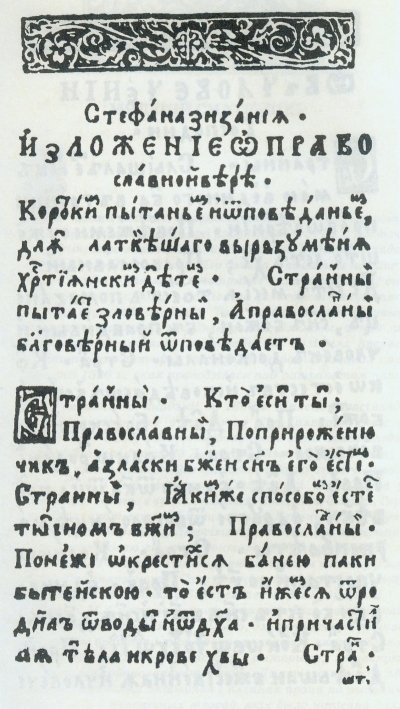 Стефа́на зиза́нїѧ .
И҆зложе́нїе ѿ право
славной вѣ́рѣ .
Коро́тки пыта́нье и҆ ѿповѣ́данье,
длѧ̀ латвѣ́шаго вырозꙋмѣ́нѧ
хрⷭ҇тїѧ́нски дѣ́те . Стра́нный
пыта́є зловѣ́рный, а҆ правосла́вный
благовѣ́рный ѿповѣда́етъ
Стра́нный . Кто̀ є҆сѝ ты̀ ;
Правосла́вный, По прироже́ню
чл҃къ, а҆ з ласки бж҃еи сн҃ъ е҆го̀ є҆сми .
Стра́нный, Ꙗ҆ки́мже способо є҆стє
ты̀ сн҃омъ бж҃їи ; Правосла́вны .
Поне́жъ ѡ҆крести́сѧ ба́нею паки
быте́йскою . то̀ є҆стъ и҆́жесѧ ѿро
дилъ ѿ воды̀ и҆ ѿ дх҃а . и҆ прича́стий
ѧ тѣ́ла и крове хв҃ы . Стра .
шт.